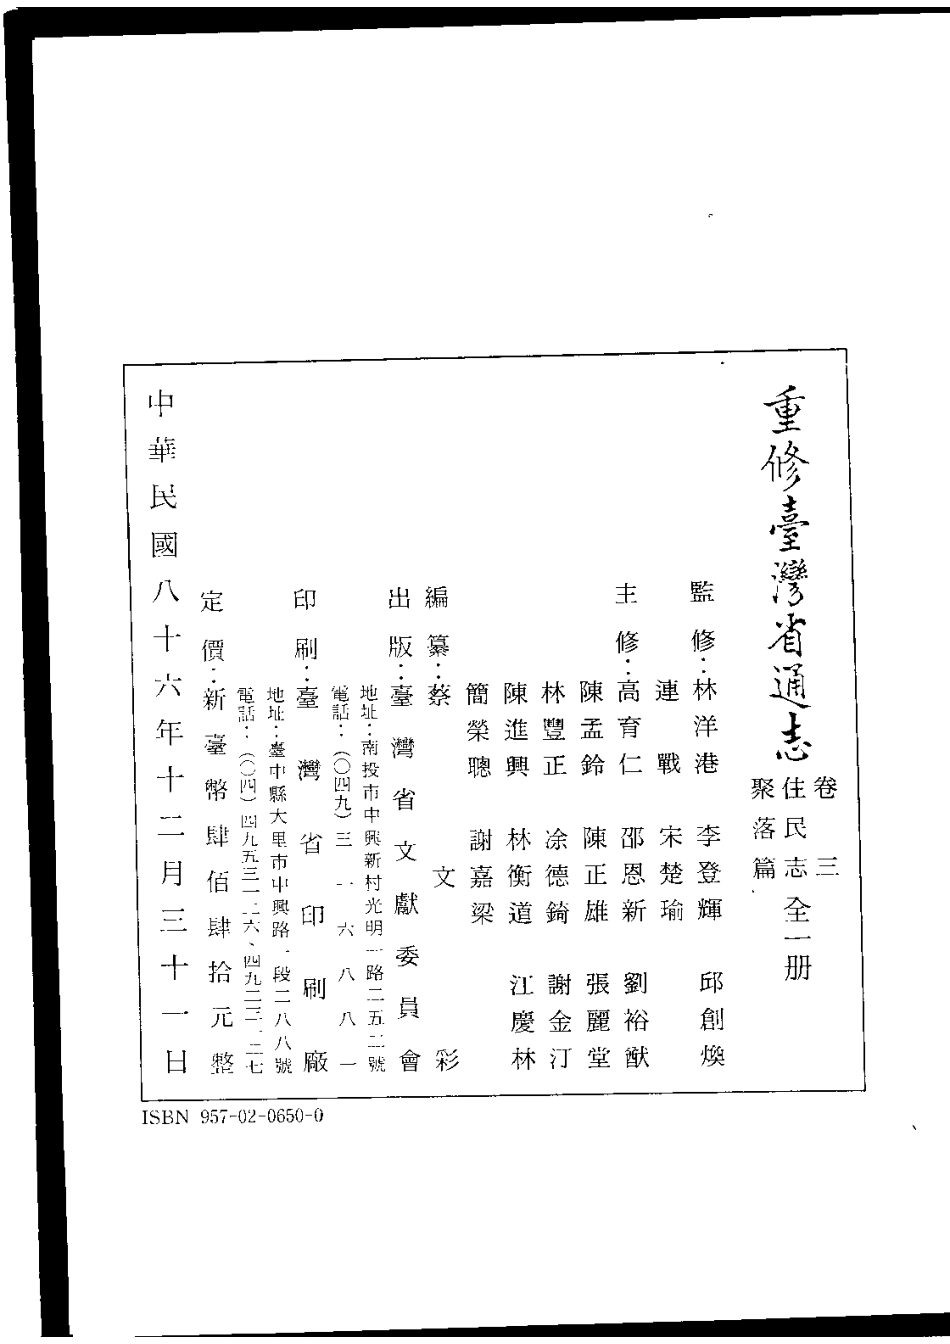 重修臺灣省通志
卷三
住民志全一册
聚落篇
監修：林洋港　李登輝　邱創煥
連戰　宋楚瑜
主修：高育仁　邵恩新　劉裕猷
陳孟鈴　陳正雄　張麗堂
林豐正　涂德錡　謝金汀
陳進興　林衡道　江慶林
簡榮聰　謝嘉梁
編纂：蔡文彩
出版：臺灣省文獻委員會
地址：南投市中興新村光明一路二五二號
電話：（〇四九）三一六八八一
印刷：臺灣省印刷廠
地址：臺中縣大里市中興路一段二八八號
電話：（〇四）四九五三一二六、四九二三一二七
定價：新臺幣肆佰肆拾元整
中華民國八十六年十二月三十一日
ISBN 957-02-0650-0